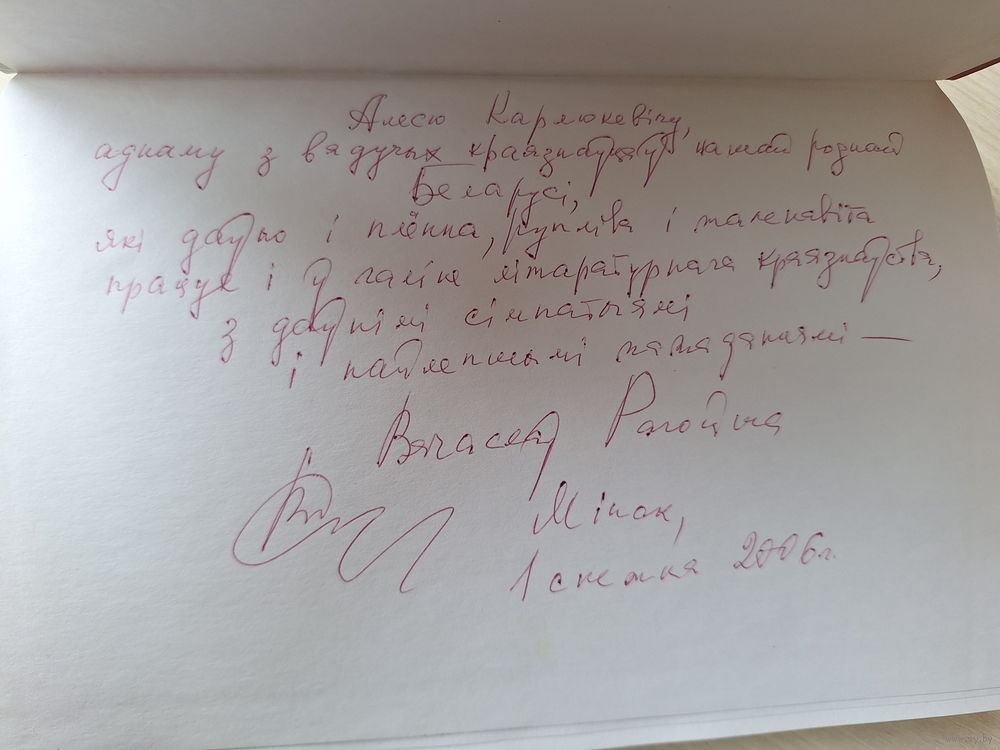 Алесю Карлюкевічу,
аднаму з вядучых краязнаўцаў нашай роднай
Беларусі,
які даўно і плённа, рупліва і таленавіта
працуе і ў галіне літаратурнага краязнаўства,
з даўнімі сімпатыямі
і найлепшымі пажаданнямі —
Вячаслаў Рагойша
Мінск,
1 снежня 2006 г.